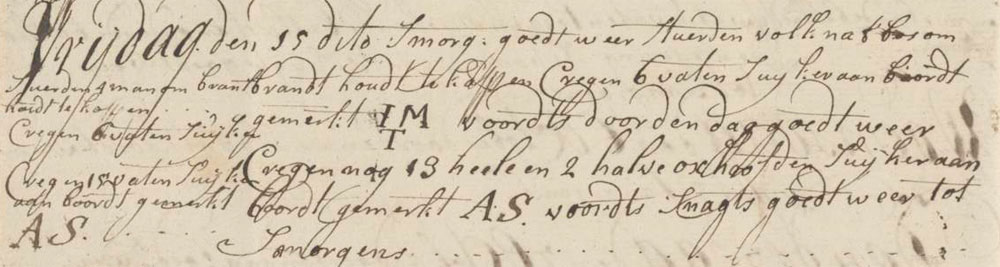 Vrijdag den 15 dito Smorg: goedt weer stuerden volk na t bos om
brandt houdt te kappen Cregen 6 vaten Suijker aan boordt
gemerkt IM
T voordts door den dag goedt weer
Cregen nog 13 heele en 2 halve oxhoofden Suijker aan
boordt gemerkt A.S. voordts Snagts goedt weer tot
Smorgens
stuerden 4 man om brant
houdt te kappen
Cregen 6 vaten Suijker
Cregen vaten Suijker
aan boordt gemerkt
A S.